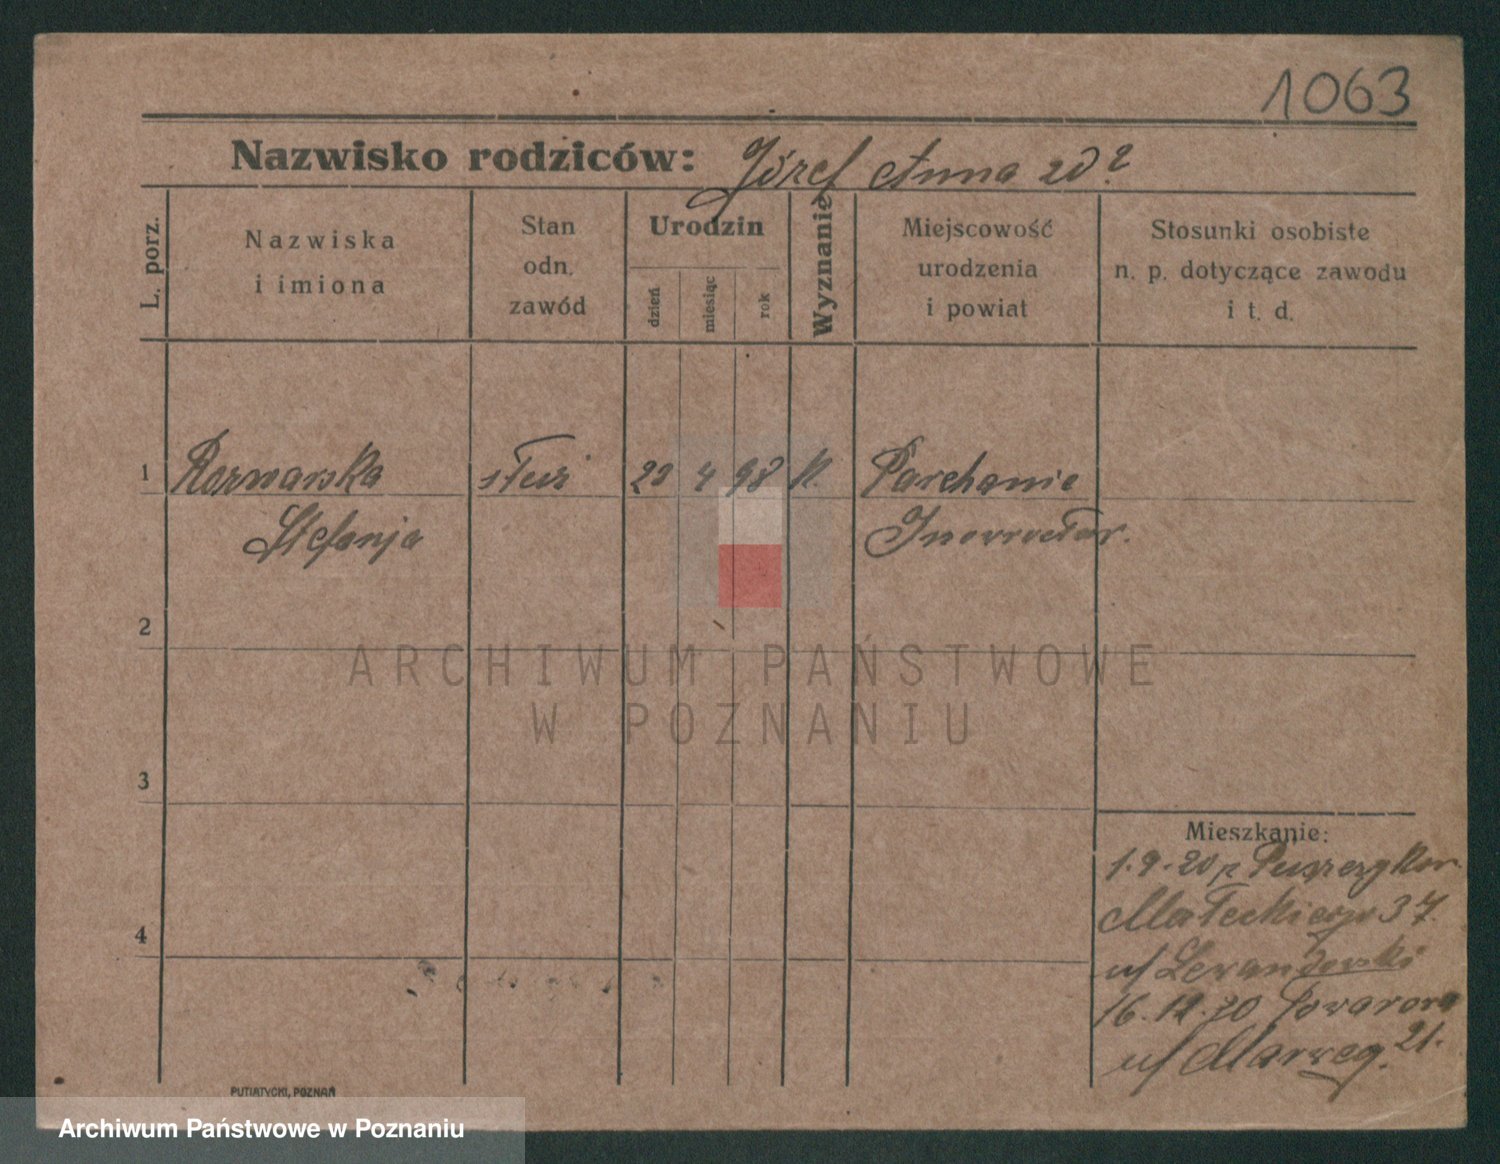 1063
Nazwisko rodziców: Józef Anna zd?
L. porz.
Nazwiska
i imiona
Stan
odn.
zawód
Urodzin
dzień
miesiąc
rok
Wyznanie
Miejscowość
urodzenia
i powiat
Stosunki osobiste
n. p. dotyczące zawodu
i t. d.
1 służ 22 4 98 K. Parchanie
Stefanja
2
ARCHIWUM PAŃSTWOWE
W POZNANIU
3
Mieszkanie:
1.9.20
Małeckiego 37.
4
u/ Lewandowski
16.12.20
u/ 21.
PUTIATYCKI, POZNAŃ
Archiwum Państwowe w Poznaniu